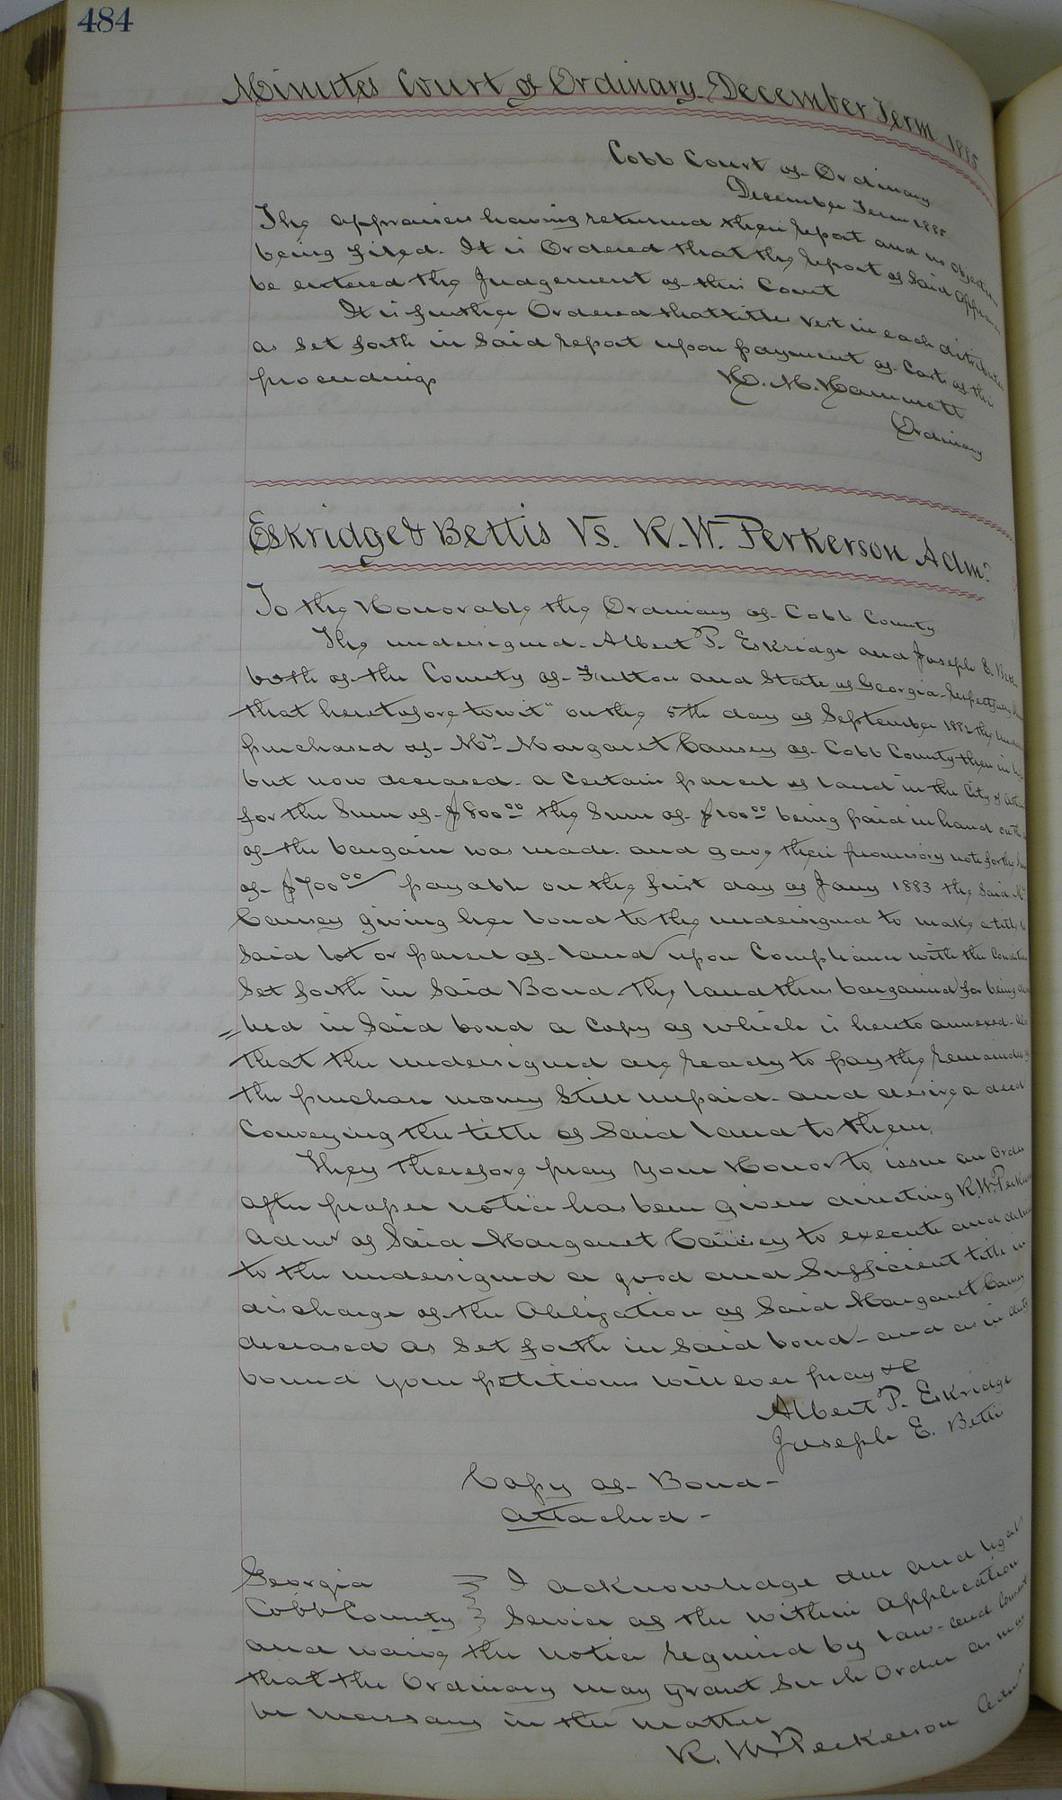 484
Minutes Court of Ordinary December Term 1885
Cobb Court of Ordinary
December Term 1885
The appraisers having returned their report and no objection
being filed. It is Ordered that the report of said
be entered the Judgement of this Court
It is further Ordered that title vest in each
as set forth in said report upon payment of Cost of this
proceedings
H. M. Hammett
Ordinary
Eskridge & Bettis Vs. R. W. Perkerson Adm.r
To the Honorable the Ordinary of Cobb County
The undersigned Albert P. Eskridge and Joseph E.
both of the County of Fulton and State of Georgia respectfully
that heretofore towit" on the 5th day of September 1882 the
purchased of Mrs Margaret Causey of Cobb County then in life
but now deceased a certain parcel of land in the City of
for the Sum of $800.00 the Sum of $100.00 being paid in hand on the
of the bargain was made. and gave their promissory note for the
of $700.00 payable on the first day of Jany 1883 the Said Mrs
Causey giving her bond to the undersigned to make a title to
said lot or parcel of land upon Compliance with the
set forth in said Bond. The land thus bargained for being
=bed in said bond a Copy of which is hereto annexed
that the undersigned are ready to pay the remainder of
the purchase money still unpaid and desire a deed
Conveying the title of said land to them.
They therefore pray your Honor to issue an order
after proper notice has been given directing R. W.
Admr of said Margaret Causey to execute and
to the undersigned a good and sufficient title in
discharge of the Obligation of said Margaret Causey
deceased as set forth in said bond and as in duty
bound your petitioners will ever pray &c
Albert P. Eskridge
Joseph E. Bettis
Copy of Bond
attached
Georgia } I acknowledge due and legal
Cobb County } Service of the within application
and waive the notice required by law and
that the Ordinary may grant such Order as may
be necessary in the matter
R. W. Perkerson Admr